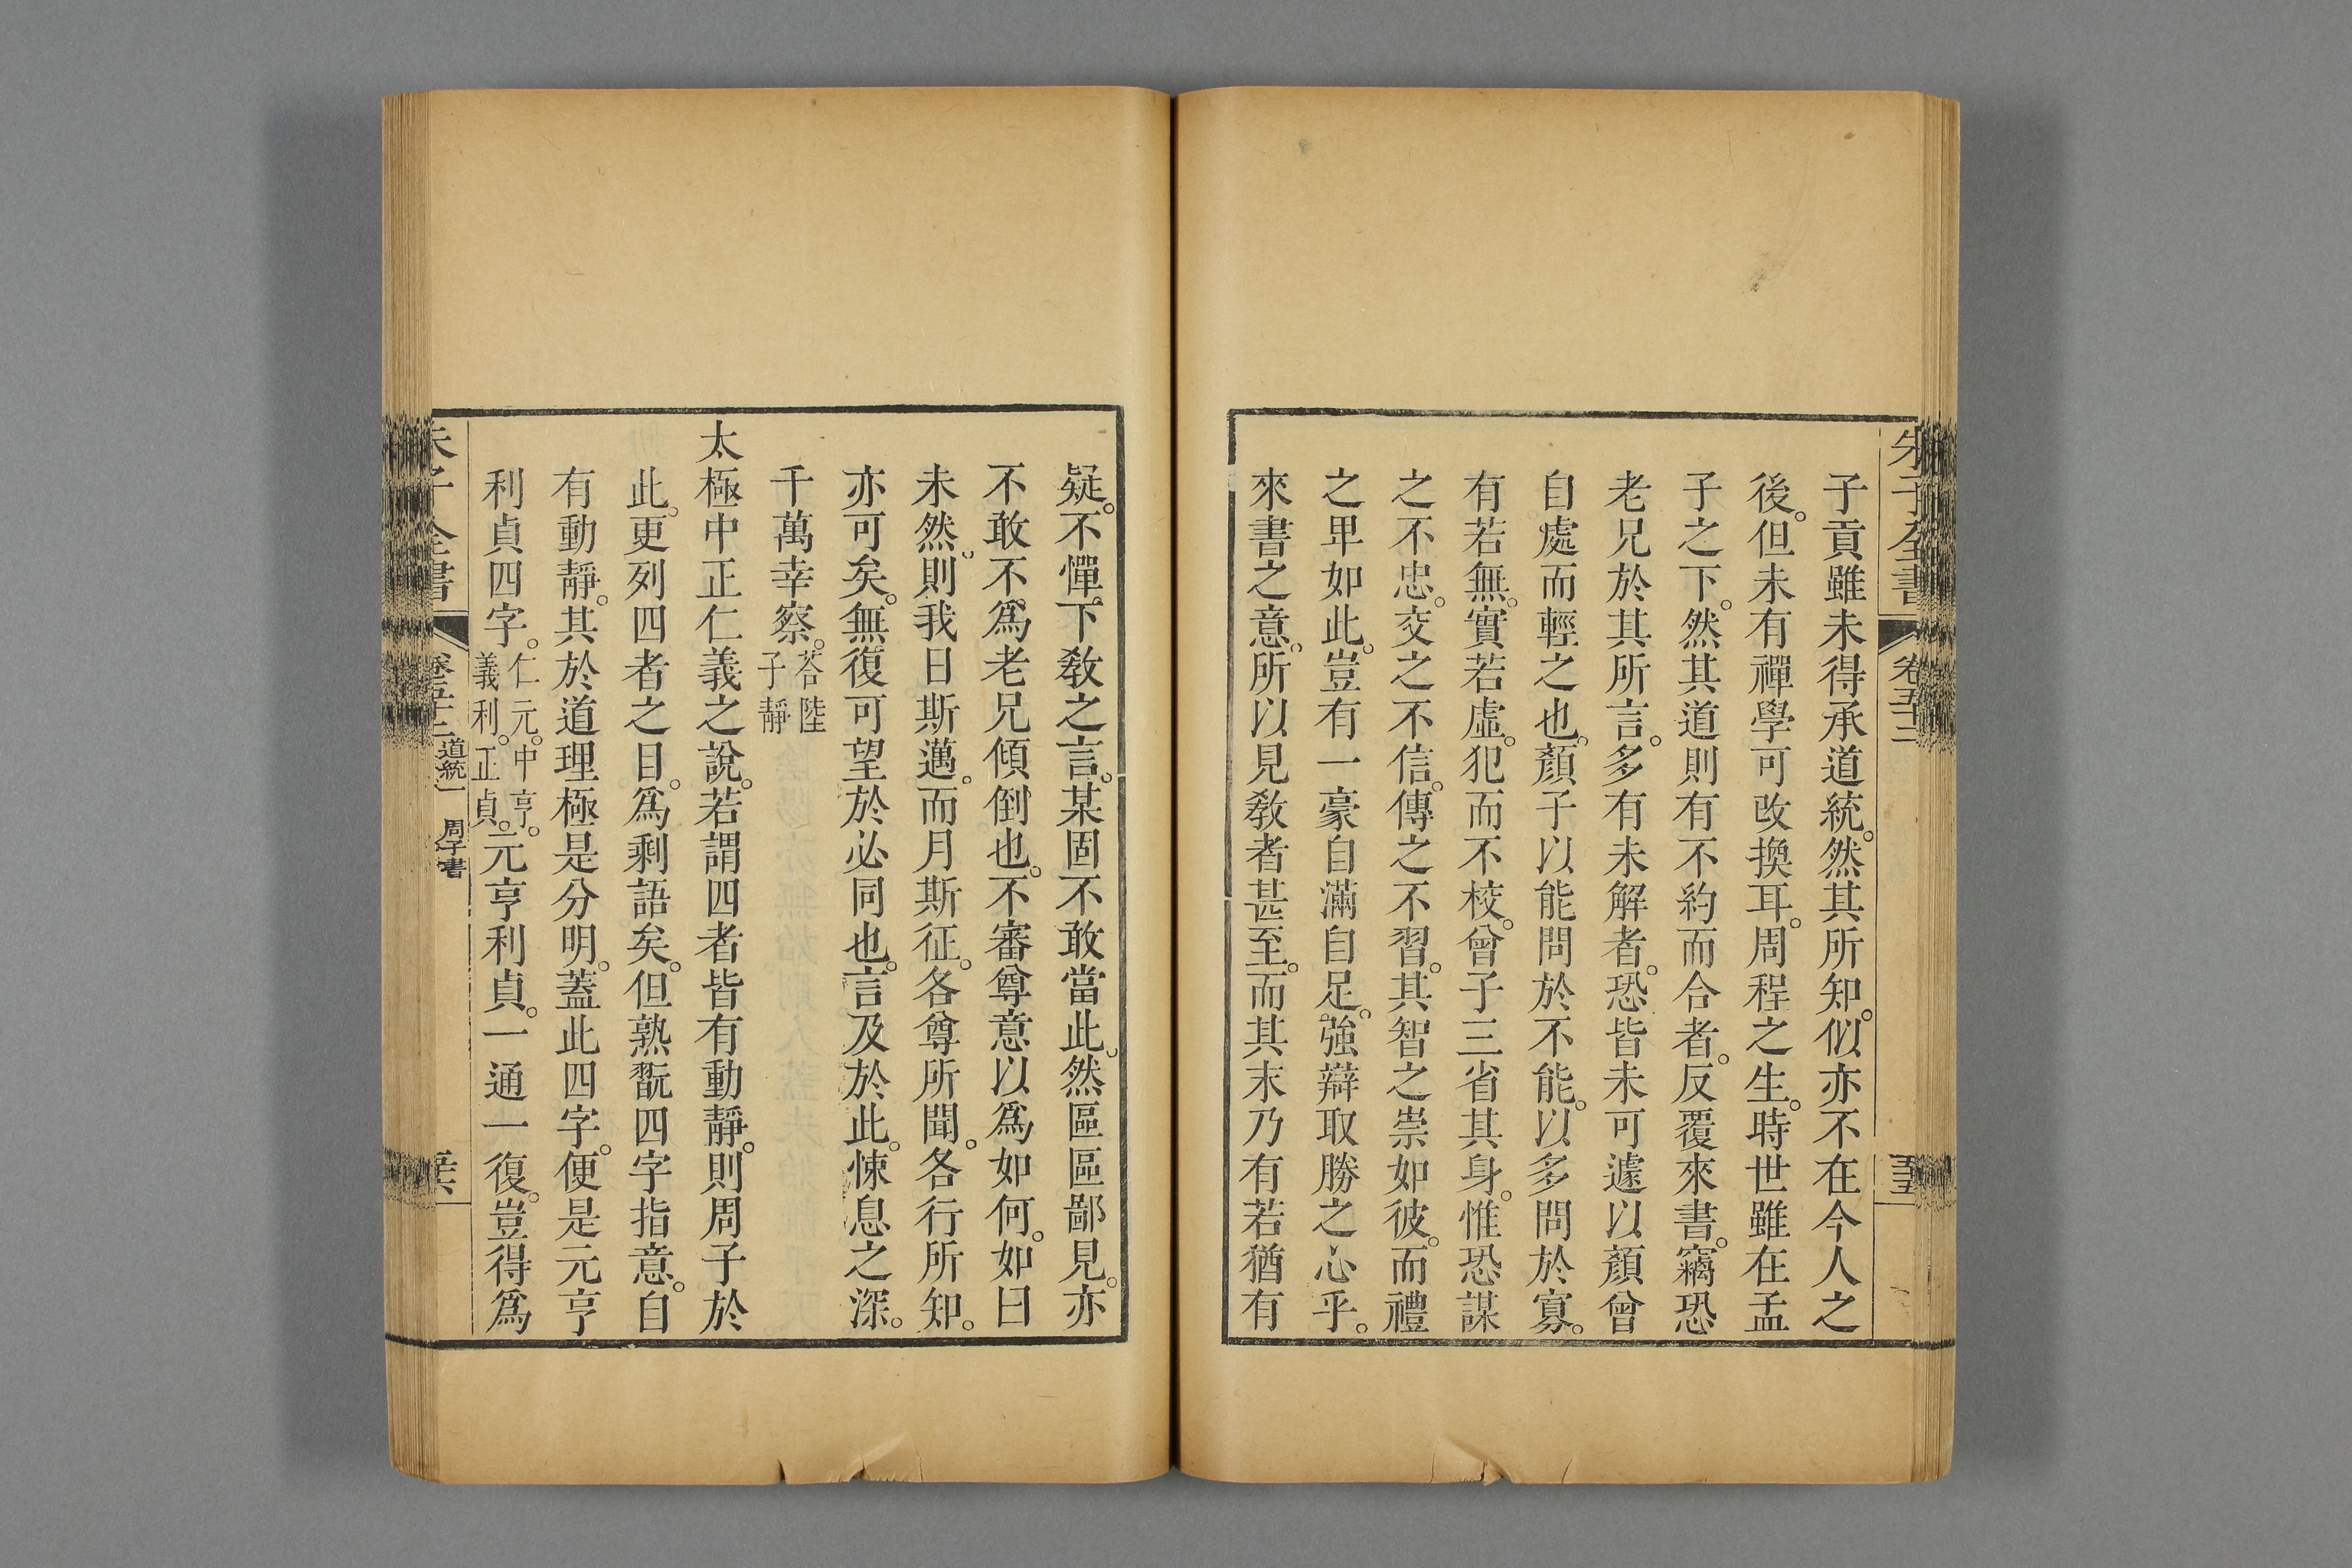 朱子全書 卷五十二 五
子貢雖未得承道統。然其所知。似亦不在今人之
後。但未有禪學可改換耳。周程之生。時世雖在孟
子之下。然其道則有不約而合者。反覆來書。竊恐
老兄於其所言。多有未解者。恐皆未可遽以顏曾
自處而輕之也。顏子以能問於不能。以多問於寡。
有若無。實若虛。犯而不校。曾子三省其身。惟恐謀
之不忠。交之不信。傳之不習。其智之崇如彼。而禮
之卑如此。豈有一豪自滿自足。強辯取勝之心乎。
來書之意。所以見敎者甚至。而其末乃有若猶有
疑。不憚下敎之言。某固不敢當此。然區區鄙見。亦
不敢不爲老兄傾倒也。不審尊意以爲如何。如曰
未然。則我日斯邁。而月斯征。各尊所聞。各行所知。
亦可矣。無復可望於必同也。言及於此。悚息之深。
千萬幸察。荅陸子靜
太極中正仁義之說。若謂四者皆有動靜。則周子於
此。更列四者之目。爲剩語矣。但熟翫四字指意。自
有動靜。其於道理極是分明。蓋此四字。便是元亨
利貞四字。仁元。中亨。義利。正貞。元亨利貞。一通一復。豈得爲
朱子全書 卷五十二 道統一 周子書